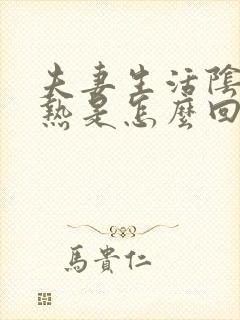 夫妻生活陰
熱是怎麼回
馬貴仁